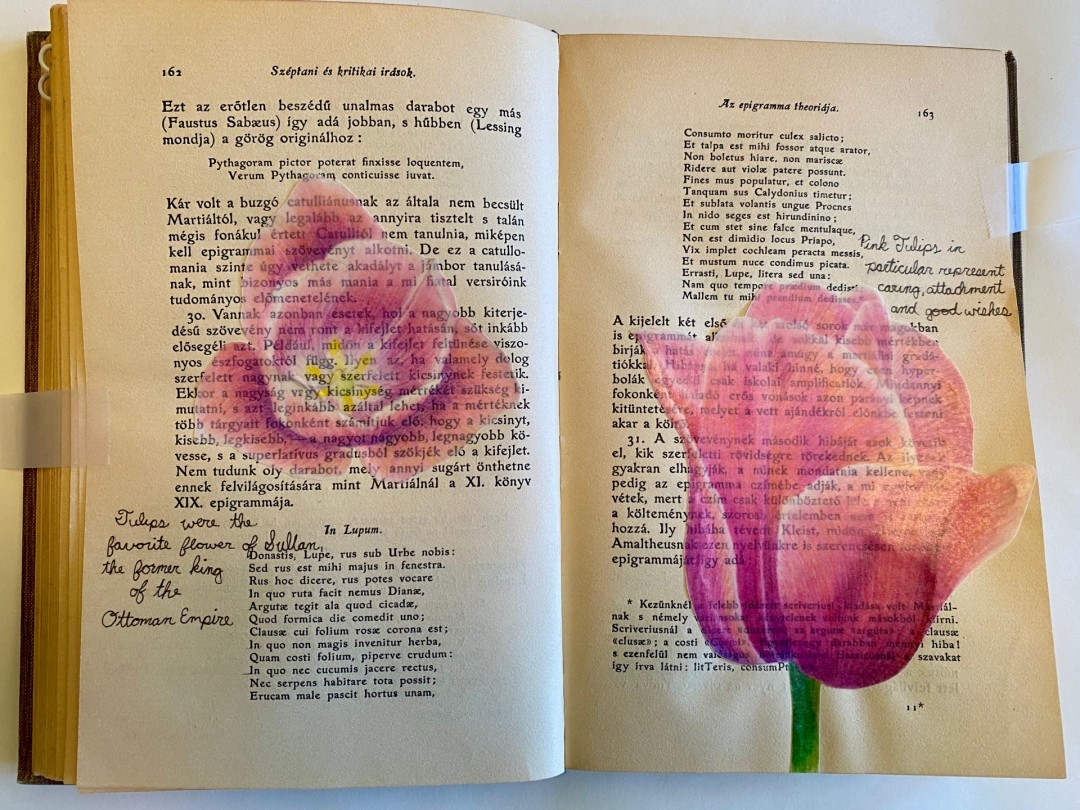 162
Széptani és kritikai irások.
Ezt az erőtlen beszédű unalmas darabot egy más
(Faustus Sabæus) így adá jobban, s hűbben (Lessing
mondja) a görög originálhoz :
Pythagoram pictor poterat finxisse loquentem,
Verum Pythagoram conticuisse iuvat.
Kár volt a buzgó catulliánusnak az általa nem becsült
Martiáltól, vagy legalább az annyira tisztelt s talán
mégis fonákul értett Catulltól nem tanulnia, miképen
kell epigrammai szövevényt alkotni. De ez a catullo-
mania szinte úgy vethete akadályt a jámbor tanulásá-
nak, mint bizonyos más mania a mi fiatal versiróink
tudományos előmenetelének.
30. Vannak azonban esetek, hol a nagyobb kiterje-
désű szövevény nem ront a kifejlet hatásán, sőt inkább
elősegéli azt. Például, midőn a kifejlet feltünése viszo-
nyos észfogatoktól függ. Ilyen az, ha valamely dolog
szerfelett nagynak vagy szerfelett kicsinynek festetik.
Ekkor a nagyság vagy kicsinység mértékét szükség ki-
mutatni, s azt leginkább azáltal lehet, ha a mértéknek
több tárgyait fokonként számítjuk elő: hogy a kicsinyt,
kisebb, legkisebb, — a nagyot nagyobb, legnagyobb kö-
vesse, s a superlatívus gradusból szökjék elő a kifejlet.
Nem tudunk oly darabot, mely annyi sugárt önthetne
ennek felvilágosítására mint Martiálnál a XI. könyv
XIX. epigrammája.
In Lupum.
Donastis, Lupe, rus sub Urbe nobis:
Sed rus est mihi majus in fenestra.
Rus hoc dicere, rus potes vocare
In quo ruta facit nemus Dianæ,
Argutæ tegit ala quod cicadæ,
Quod formica die comedit uno;
Clausæ cui folium rosæ corona est;
In quo non magis invenitur herba,
Quam costi folium, piperve crudum:
In quo nec cucumis jacere rectus,
Nec serpens habitare tota possit;
Erucam male pascit hortus unam,
Tulips were the
favorite flower of Sultan,
the former king
of the
Ottoman Empire
Az epigramma theoriája.
163
Consumto moritur culex salicto;
Et talpa est mihi fossor atque arator,
Non boletus hiare, non mariscæ
Ridere aut violæ patere possunt.
Fines mus populatur, et colono
Tanquam sus Calydonius timetur;
Et sublata volantis ungue Procnes
In nido seges est hirundinino;
Et cum stet sine falce mentulaque,
Non est dimidio locus Priapo,
Vix implet cochleam peracta messis,
Et mustum nuce condimus picata.
Errasti, Lupe, litera sed una:
Nam quo tempore prædium dedisti
Mallem tu mihi prandium dedisses.
Pink Tulips in
particular represent
caring, attachment
and good wishes
A kijelelt két első utolsó sorok már magokban
is epigrammát sokkal kisebb mértékben
birják hatás amúgy a martiálisi gradá-
tiókkal Hibáz ha valaki hinné, hogy ezen hyper-
bolák egyedül csak iskolai amplificatiók. Mindannyi
fokonkénti erős vonások azon parányi képnek
kitüntetésére, melyet a vett ajándékról előnkbe festeni
akar a költő.
31. A szövevénynek második hibáját azok követik
el, kik szerfeletti rövidségre törekednek. Az ilyenek
gyakran elhagyják, a minek mondatnia kellene, vagy
pedig az epigramma czímébe adják, a mi
vétek, mert a czím csak különböztető
a költeménynek, szoros értelemben nem
hozzá. Ily hibába tévedt Kleist, midőn
Amaltheusnak ezen nyelvünkre is szerencsésen
epigrammáját így adá
* Kezünknél a felebb idézett scriveriusi kiadása volt Martiál-
nak s némely okat kénytelenek voltunk másokból kiirni.
Scriveriusnál a dicere az argutæ targutæ; a clausæ
«clusæ»; a costi darabban mennyi hiba!
s ezenfelül nem szavakat
így írva látni: litTeris, consumPt
11*